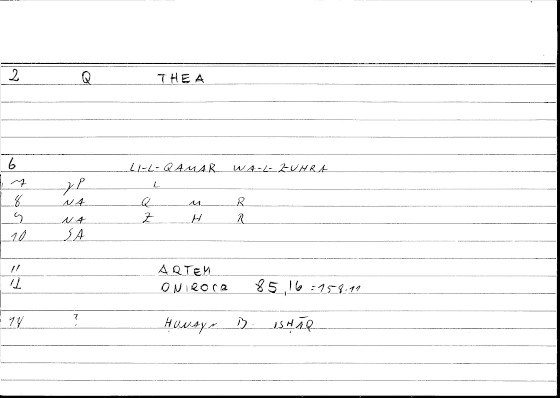 2 Q THEA
6 LI-L-QAMAR WA-L-ZUHRA
7 γP L
8 NA Q M R
9 NA Z H R
10 SA
11 ARTEM
12 ONIROCR 85,16 = 158.11
14 ? ḤUNAYN B. ISḤĀQ